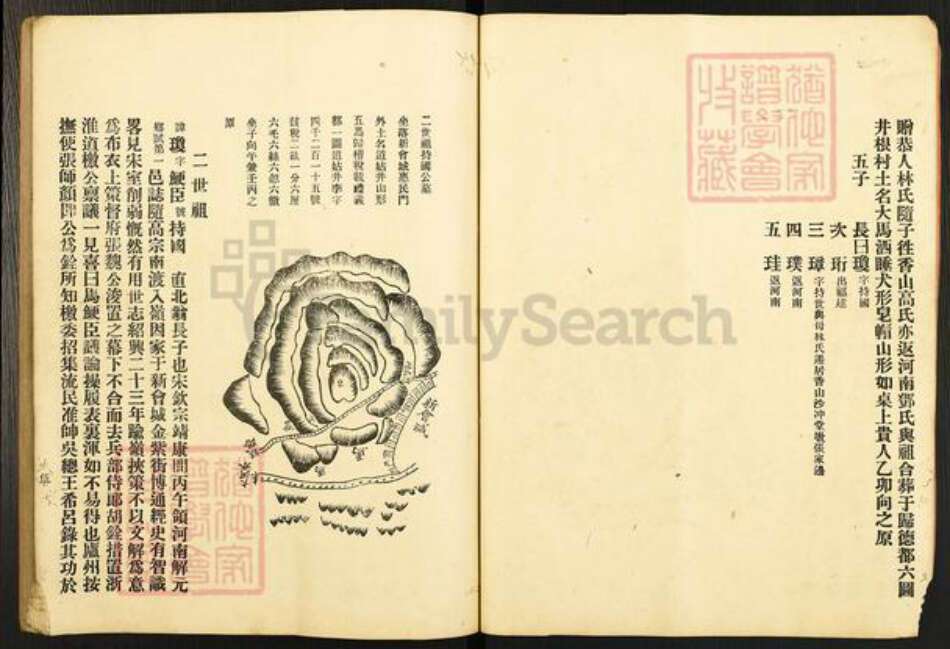 贈恭人林氏隨子徃香山高氏亦返河南鄧氏與祖合葬于歸德都六圖
井根村土名大馬洒睡犬形皂帽山形如桌上貴人乙卯向之原
五子
長曰瓊字持國
次 珩出福廷
三 璋字持世與母林氏遷居香山沙冲堂墩張家邊
四 璞返河南
五 珪返河南
二世祖持國公墓
坐落新會城惠民門
外土名道姑井山形
五馬歸槽稅載禮義
都一圖道姑井李字
四千二百一十五號
該稅二畝一分六厘
六毛六絲六忽六微
坐子向午兼壬丙之
原
新會城
馬
二世祖
諱瓊字鯁臣號持國 直北翁長子也宋欽宗靖康間丙午領河南解元
鄉試第一邑誌隨高宗南渡入嶺因家于新會城金紫街博通經史有智識
畧見宋室削弱慨然有用世志紹興二十三年踰嶺挾策不以文解為意
為布衣上策督府張魏公浚置之幕下不合而去兵部侍郎胡銓措置浙
淮道檄公禀議一見喜曰馬鯁臣議論操履表裏渾如不易得也廬州按
撫使張師顏即公為銓所知檄委招集流民准帥吳總王希呂錄其功於
FamilySearch